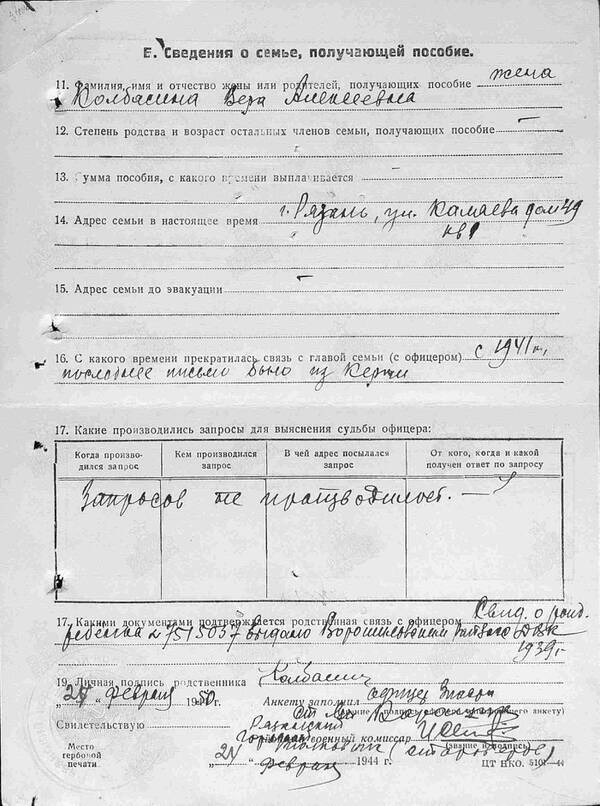 Е. Сведения о семье, получающей пособие.
11. Фамилия, имя и отчество жены или родителей, получающих пособие жена
Колбасина Вера Алексеевна
12. Степень родства и возраст остальных членов семьи, получающих пособие —
13. Сумма пособия, с какого времени выплачивается
14. Адрес семьи в настоящее время г. Рязань, ул. Каляева дом 49
кв 1
15. Адрес семьи до эвакуации —
16. С какого времени прекратилась связь с главой семьи (с офицером) с 1941 г.,
последнее письмо было из Керчи
17. Какие производились запросы для выяснения судьбы офицера:
Когда производился запрос
Кем производился запрос
В чей адрес посылался запрос
От кого, когда и какой получен ответ по запросу
Запросов не производилось. —
17. Какими документами подтверждается родственная связь с офицером Свид. о рожд.
ребенка 1939 г.
19. Личная подпись родственника Колбасина
февраля Анкету заполнил
Свидетельствую Рязанский
Горвоенкомат военный комиссар
Место гербовой печати
февраля 1944 г.
ЦТ НКО.